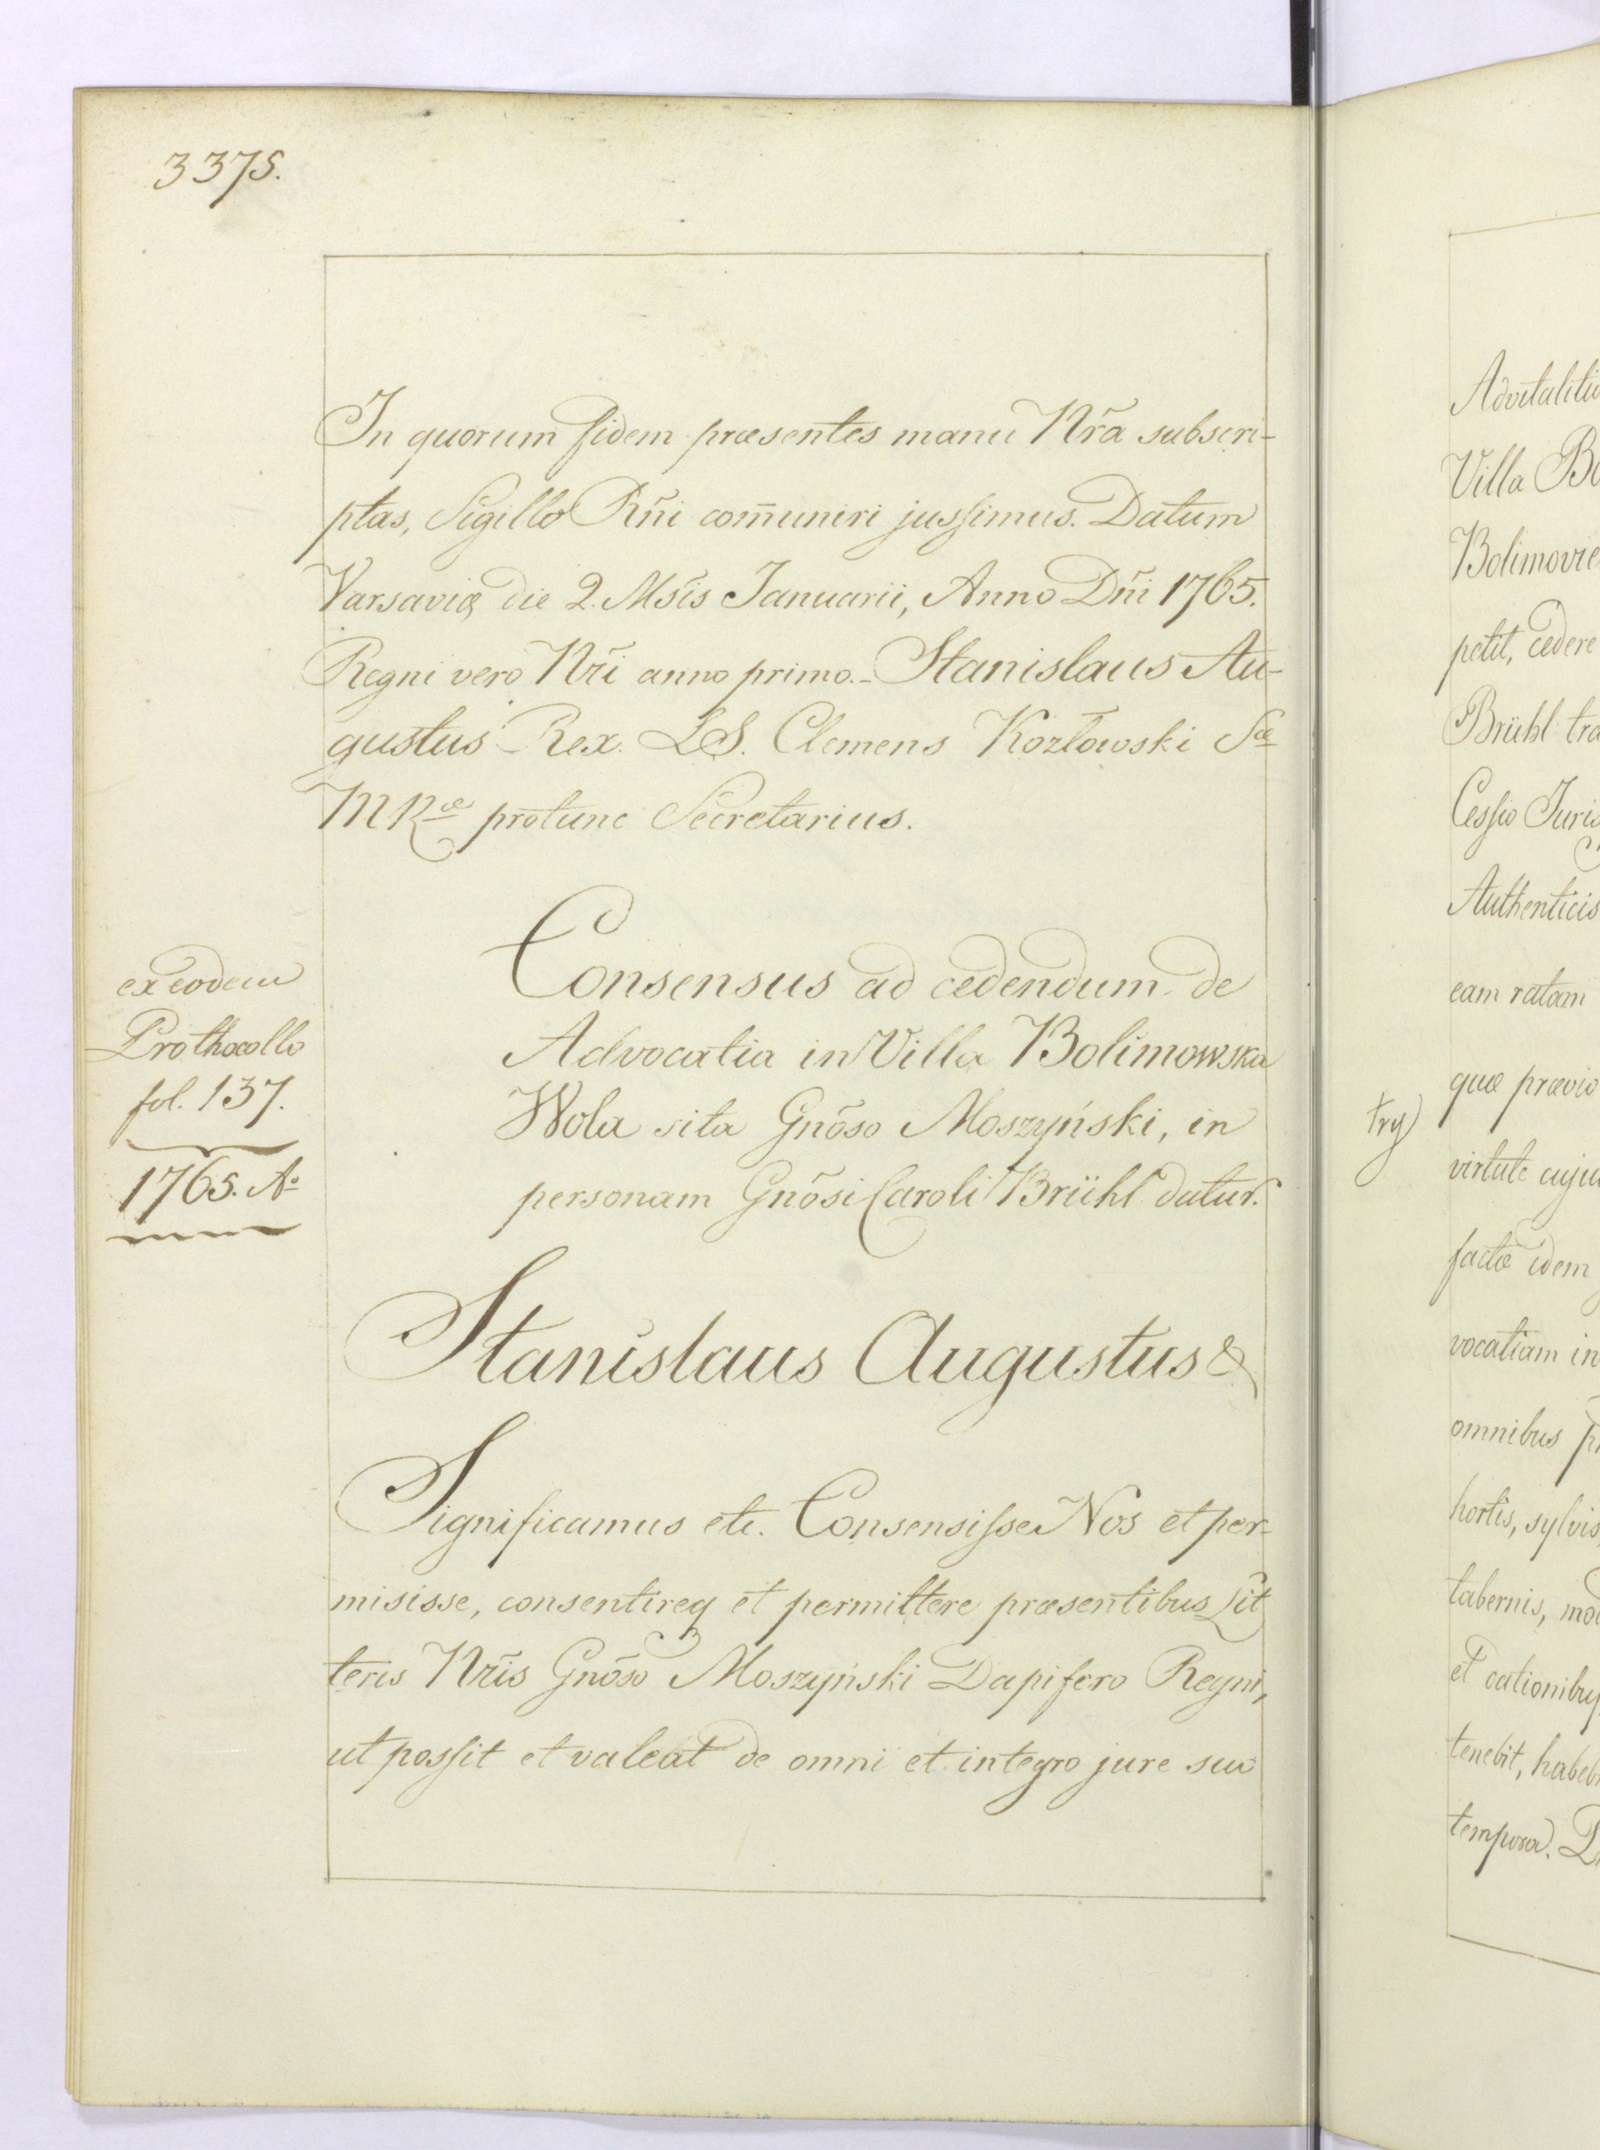 3375.
In quorum fidem præsentes manu Nr̃a subscri-
ptas, Sigillo Rñi com̃uniri jussimus. Datum
Varsaviæ die 2. Ms̃is Januarii, Anno Dñi 1765.
Regni vero Nr̃i anno primo.- Stanislaus Au-
gustus Rex. LS. Clemens Kozłowski Sæ
MRæ protunc Secretarius.
ex eodem
Prothocollo
fol. 137.
1765. Aº
Consensus ad cedendum de
Advocatia in Villa Bolimowska
Wola sita Gnõso Moszyński, in
personam Gnõsi Caroli Brühl datur.
Stanislaus Augustus &
Significamus etc. Consensisse Nos et per-
misisse, consentireq et permittere præsentibus Lit
teris Nr̃is Gnõso Moszyński Dapifero Regni,
ut possit et valeat de omni et integro jure suo
Advitalitio
Villa Bo
Bolimovie
petit, cedere
Brühl tra
Cessio Juris
Authenticis
eam ratam
quæ prævio
try
virtute cuju
factæ idem
vocatiam in
omnibus pr
hortis, sylvis,
tabernis, mo
et oationibus
tenebit, habeb
tempora. D